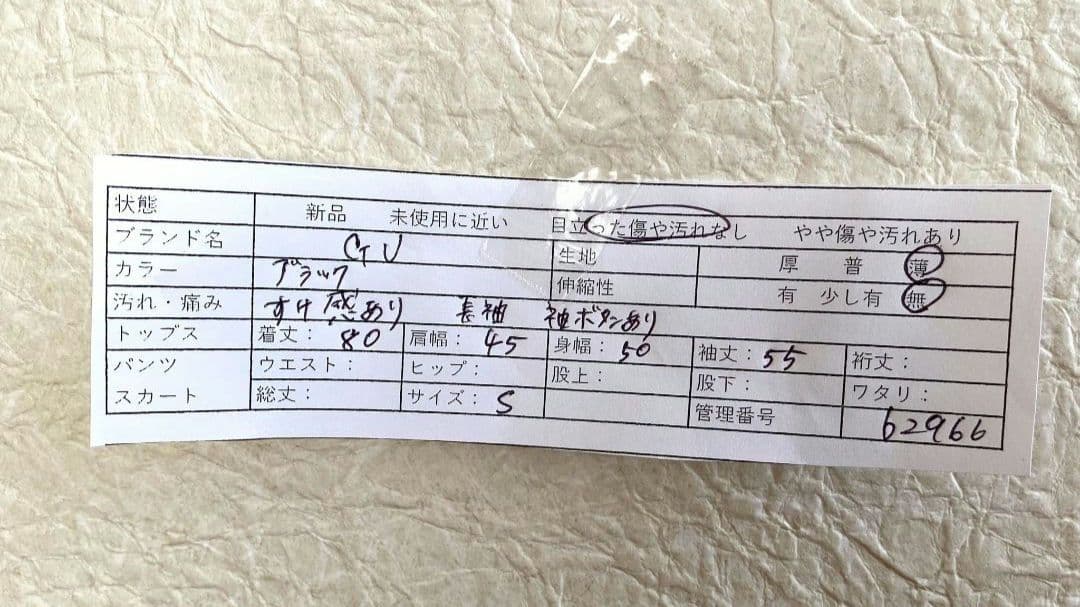 状態 新品 未使用に近い 目立った傷や汚れなし やや傷や汚れあり
ブランド名 GU 生地 厚 普 薄
カラー ブラック 伸縮性 有 少し有 無
汚れ・痛み すけ感あり 長袖 袖ボタンあり
トップス 着丈：80 肩幅：45 身幅：50 袖丈：55 裄丈：
パンツ ウエスト： ヒップ： 股上： 股下： ワタリ：
スカート 総丈： サイズ：S 管理番号 62966